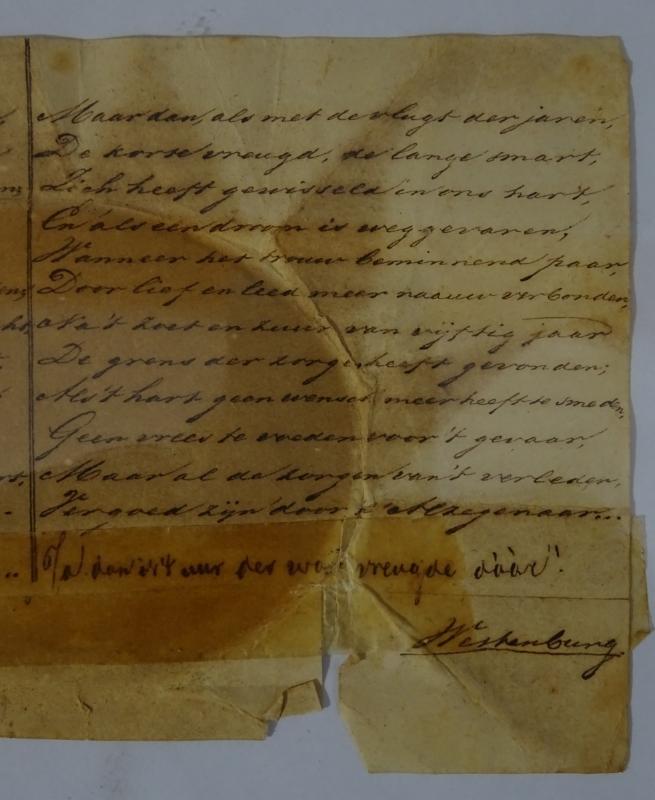 Maar dan, als met de vlugt der jaren,
De korte vreugd, de lange smart,
Zich heeft gewisseld in ons hart,
En als een droom is weggevaren;
Wanneer het trouw beminnend paar,
Door lief en leed meer naauw verbonden,
Na 't zoet en zuur van vijftig jaar
De grens der zorgen heeft gevonden;
Als 't hart geen wensch meer heeft te smeden,
Geen vrees te voeden voor 't gevaar,
Maar al de zorgen van 't verleden,
Vergoed zijn door d' Alzegenaar...
Ja! dan is 't uur der vreugde dààr!
Westenburg